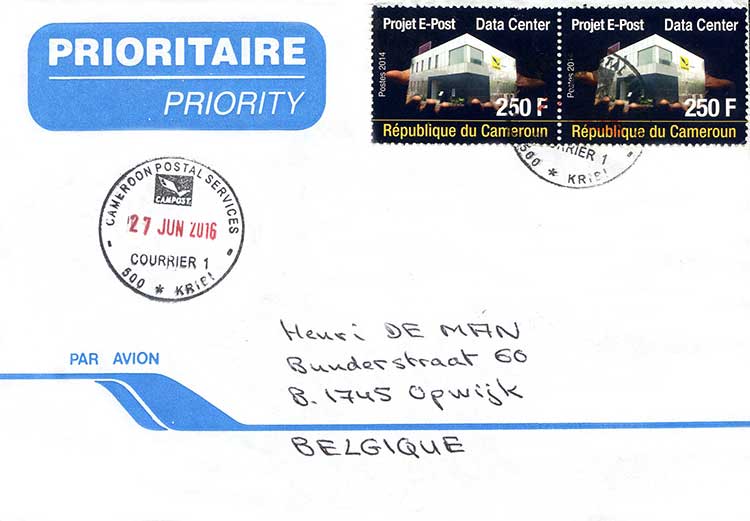 PRIORITAIRE
PRIORITY
Projet E-Post Data Center
Postes 2014
250 F
République du Cameroun
Projet E-Post Data Center
Postes 2014
250 F
République du Cameroun
COURRIER 1
500 * KRIBI
CAMEROON POSTAL SERVICES
CAMPOST
27 JUN 2016
COURRIER 1
500 * KRIBI
Henri DE MAN
Bunderstraat 60
B. 1745 Opwijk
BELGIQUE
PAR AVION